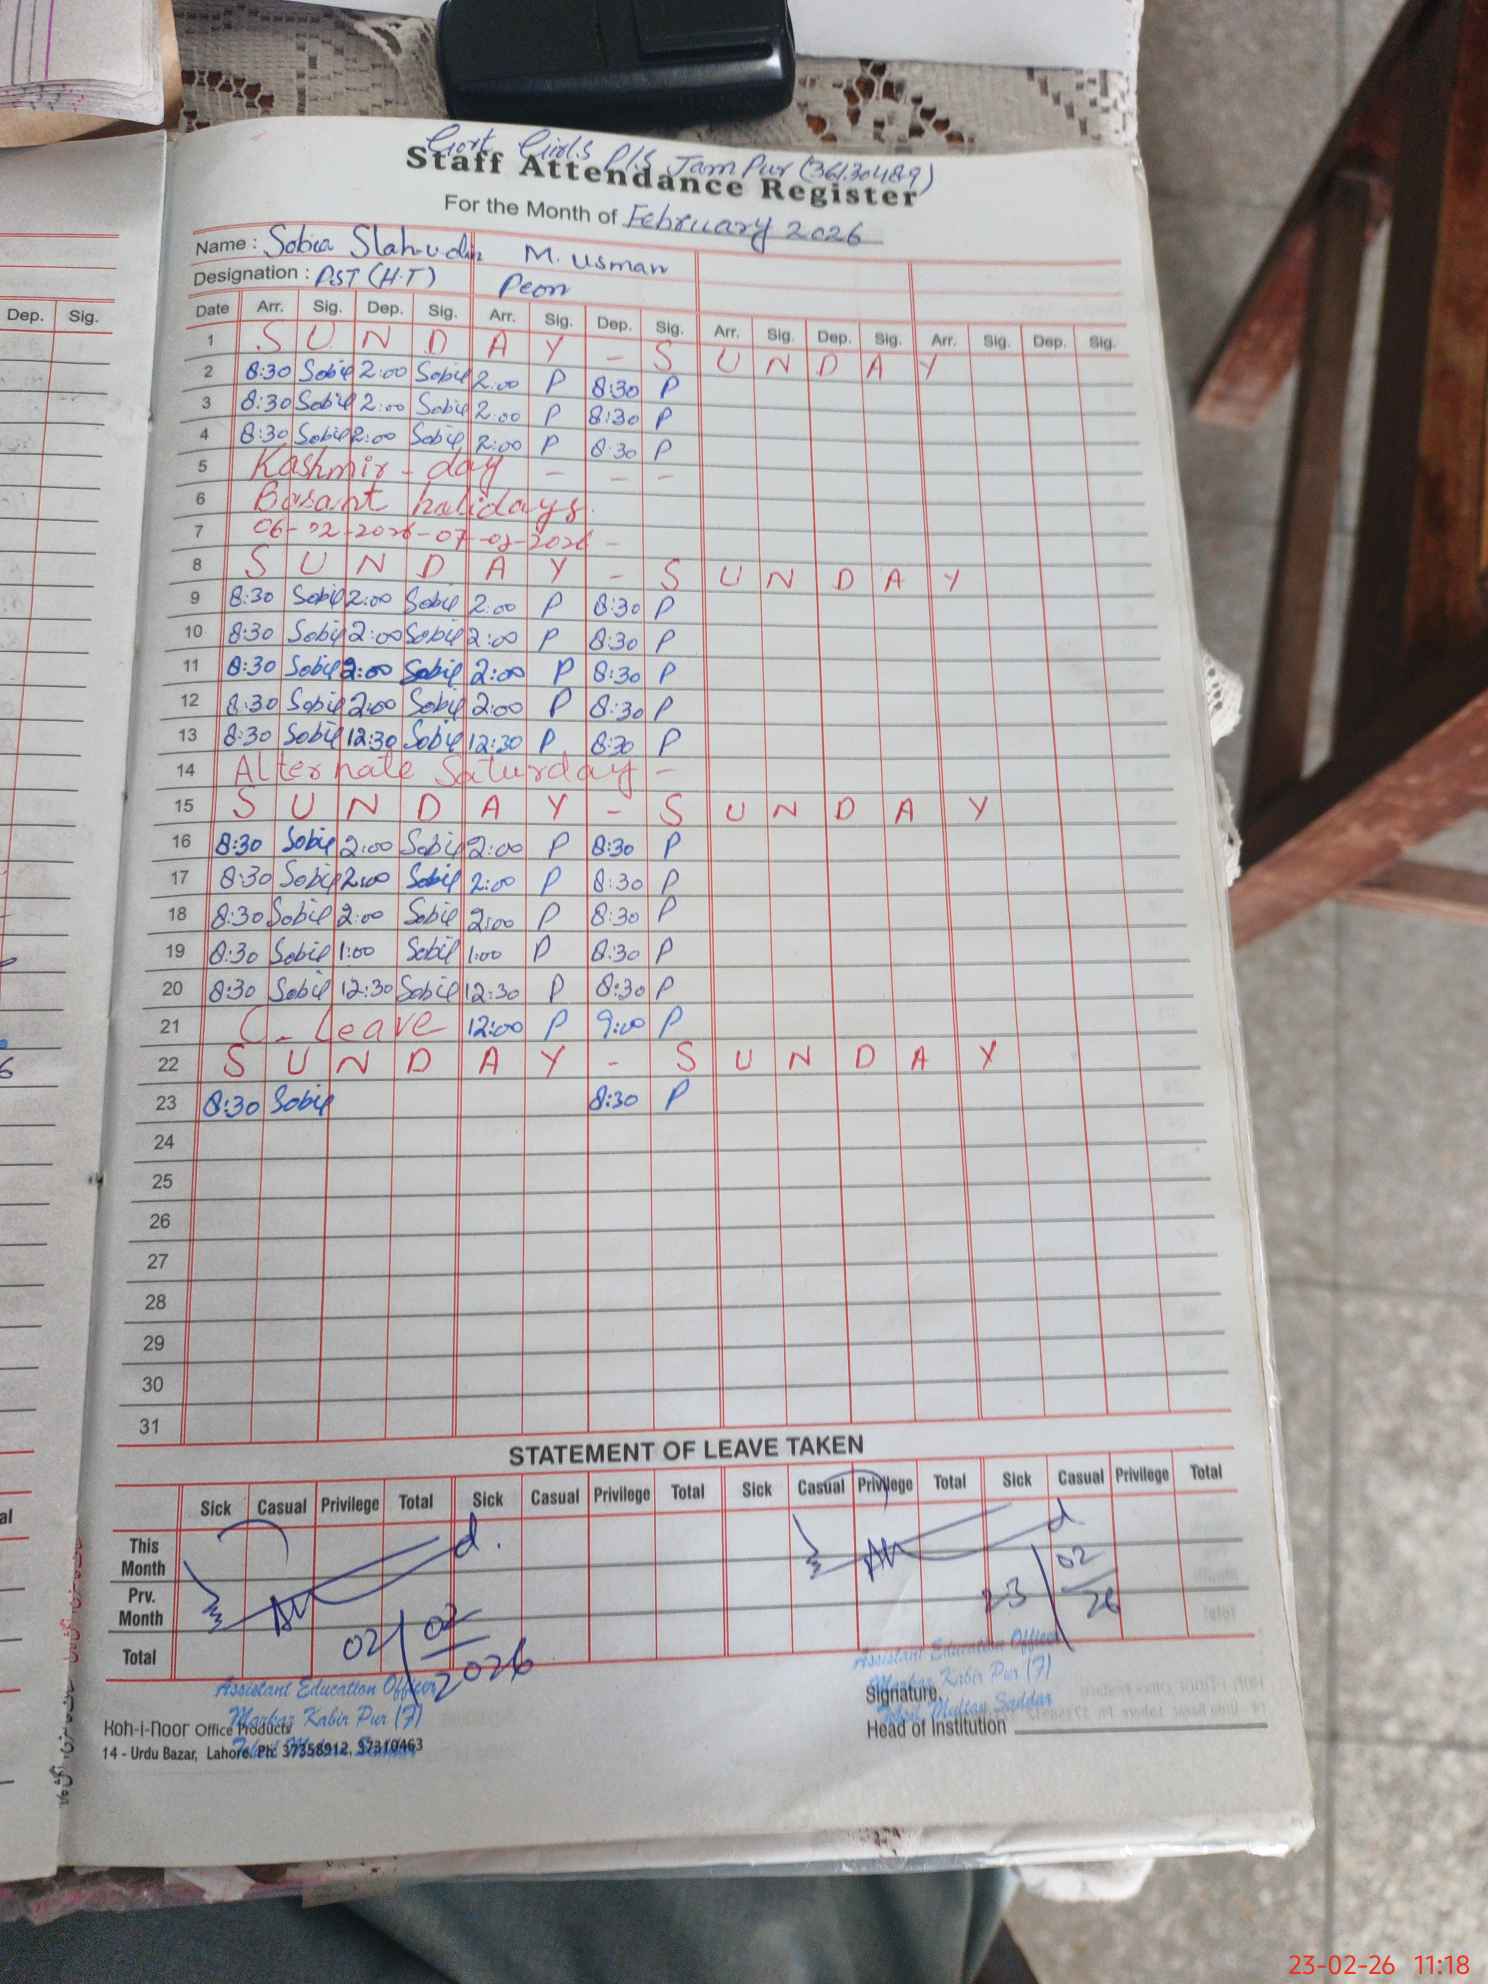 Govt Girls P/S Jam Pur (36130489)
Staff Attendance Register
For the Month of February 2026
Name : Sobia Slah-u-din M. Usman
Designation : PST (H.T) Peon
Date Arr. Sig. Dep. Sig. Arr. Sig. Dep. Sig. Arr. Sig. Dep. Sig. Arr. Sig. Dep. Sig.
1 S U N D A Y - S U N D A Y
2 8:30 Sobia 2:00 Sobia 2:00 P 8:30 P
3 8:30 Sobia 2:00 Sobia 2:00 P 8:30 P
4 8:30 Sobia 2:00 Sobia 2:00 P 8:30 P
5 Kashmir - day - - -
6 Basant halidays.
7 06-02-2026-07-02-2026 -
8 S U N D A Y - S U N D A Y
9 8:30 Sobia 2:00 Sobia 2:00 P 8:30 P
10 8:30 Sobia 2:00 Sobia 2:00 P 8:30 P
11 8:30 Sobia 2:00 Sobia 2:00 P 8:30 P
12 8:30 Sobia 2:00 Sobia 2:00 P 8:30 P
13 8:30 Sobia 12:30 Sobia 12:30 P 8:30 P
14 Alternate Saturday -
15 S U N D A Y - S U N D A Y
16 8:30 Sobia 2:00 Sobia 2:00 P 8:30 P
17 8:30 Sobia 2:00 Sobia 2:00 P 8:30 P
18 8:30 Sobia 2:00 Sobia 2:00 P 8:30 P
19 8:30 Sobia 1:00 Sobia 1:00 P 8:30 P
20 8:30 Sobia 12:30 Sobia 12:30 P 8:30 P
21 C. Leave 12:00 P 9:00 P
22 S U N D A Y - S U N D A Y
23 8:30 Sobia 8:30 P
24
25
26
27
28
29
30
31
STATEMENT OF LEAVE TAKEN
Sick Casual Privilege Total Sick Casual Privilege Total Sick Casual Privilege Total Sick Casual Privilege Total
This Month
Prv. Month
Total
02/02/2026
23/02/26
Assistant Education Officer
Markaz Kabir Pur (F)
Assistant Education Officer
Markaz Kabir Pur (F)
Tehsil Multan Saddar
Signature,
Head of Institution
Koh-i-Noor Office Products
14 - Urdu Bazar, Lahore. Ph: 37358912, 37310463
Dep. Sig.
23-02-26 11:18